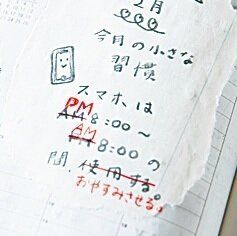 2月
今月の小さな
習慣
スマホは
PM
AM8:00〜
AM
AM8:00の
間、使用する。
おやすみさせる。